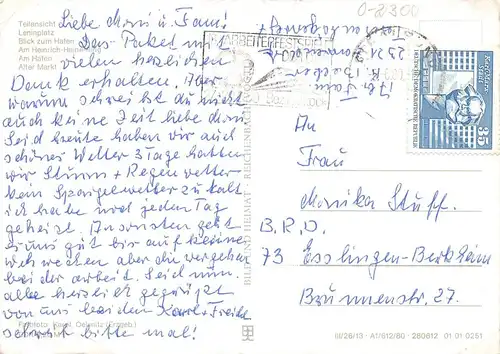 Teilansicht
Leninplatz
Blick zum Hafen
Am Heinrich-Heine
Am Hafen
Alter Markt
Liebe Moni u. Fam!
Das Paket mit
vielen herzlichen
Dank erhalten. Aber
warum schreibst du nicht
auch keine Zeit liebe Moni
Seid heute haben wir auch
schönes Wetter 3 Tage hatten
wir Sturm + Regen wetter
kein Spargelwetter zu kalt.
ich habe noch jeden Tag
geheizt. Ansonsten geht
es uns gut bin auf keiner
bei der arbeit. Seid nun
alle herzlich gegrüßt
von uns beiden Karl + Friedel
schreib bitte mal!
BILD UND HEIMAT REICHENBACH
0-2300
ARBEITERFESTSPIELE
Abs. Fam.
K.
2321
35
An
Frau
Monika Stuff.
B.R.D.
73 Esslingen-Berkheim
Brunnenstr. 27.
III/26/13 · A1/612/80 · 280612 01 01 0251